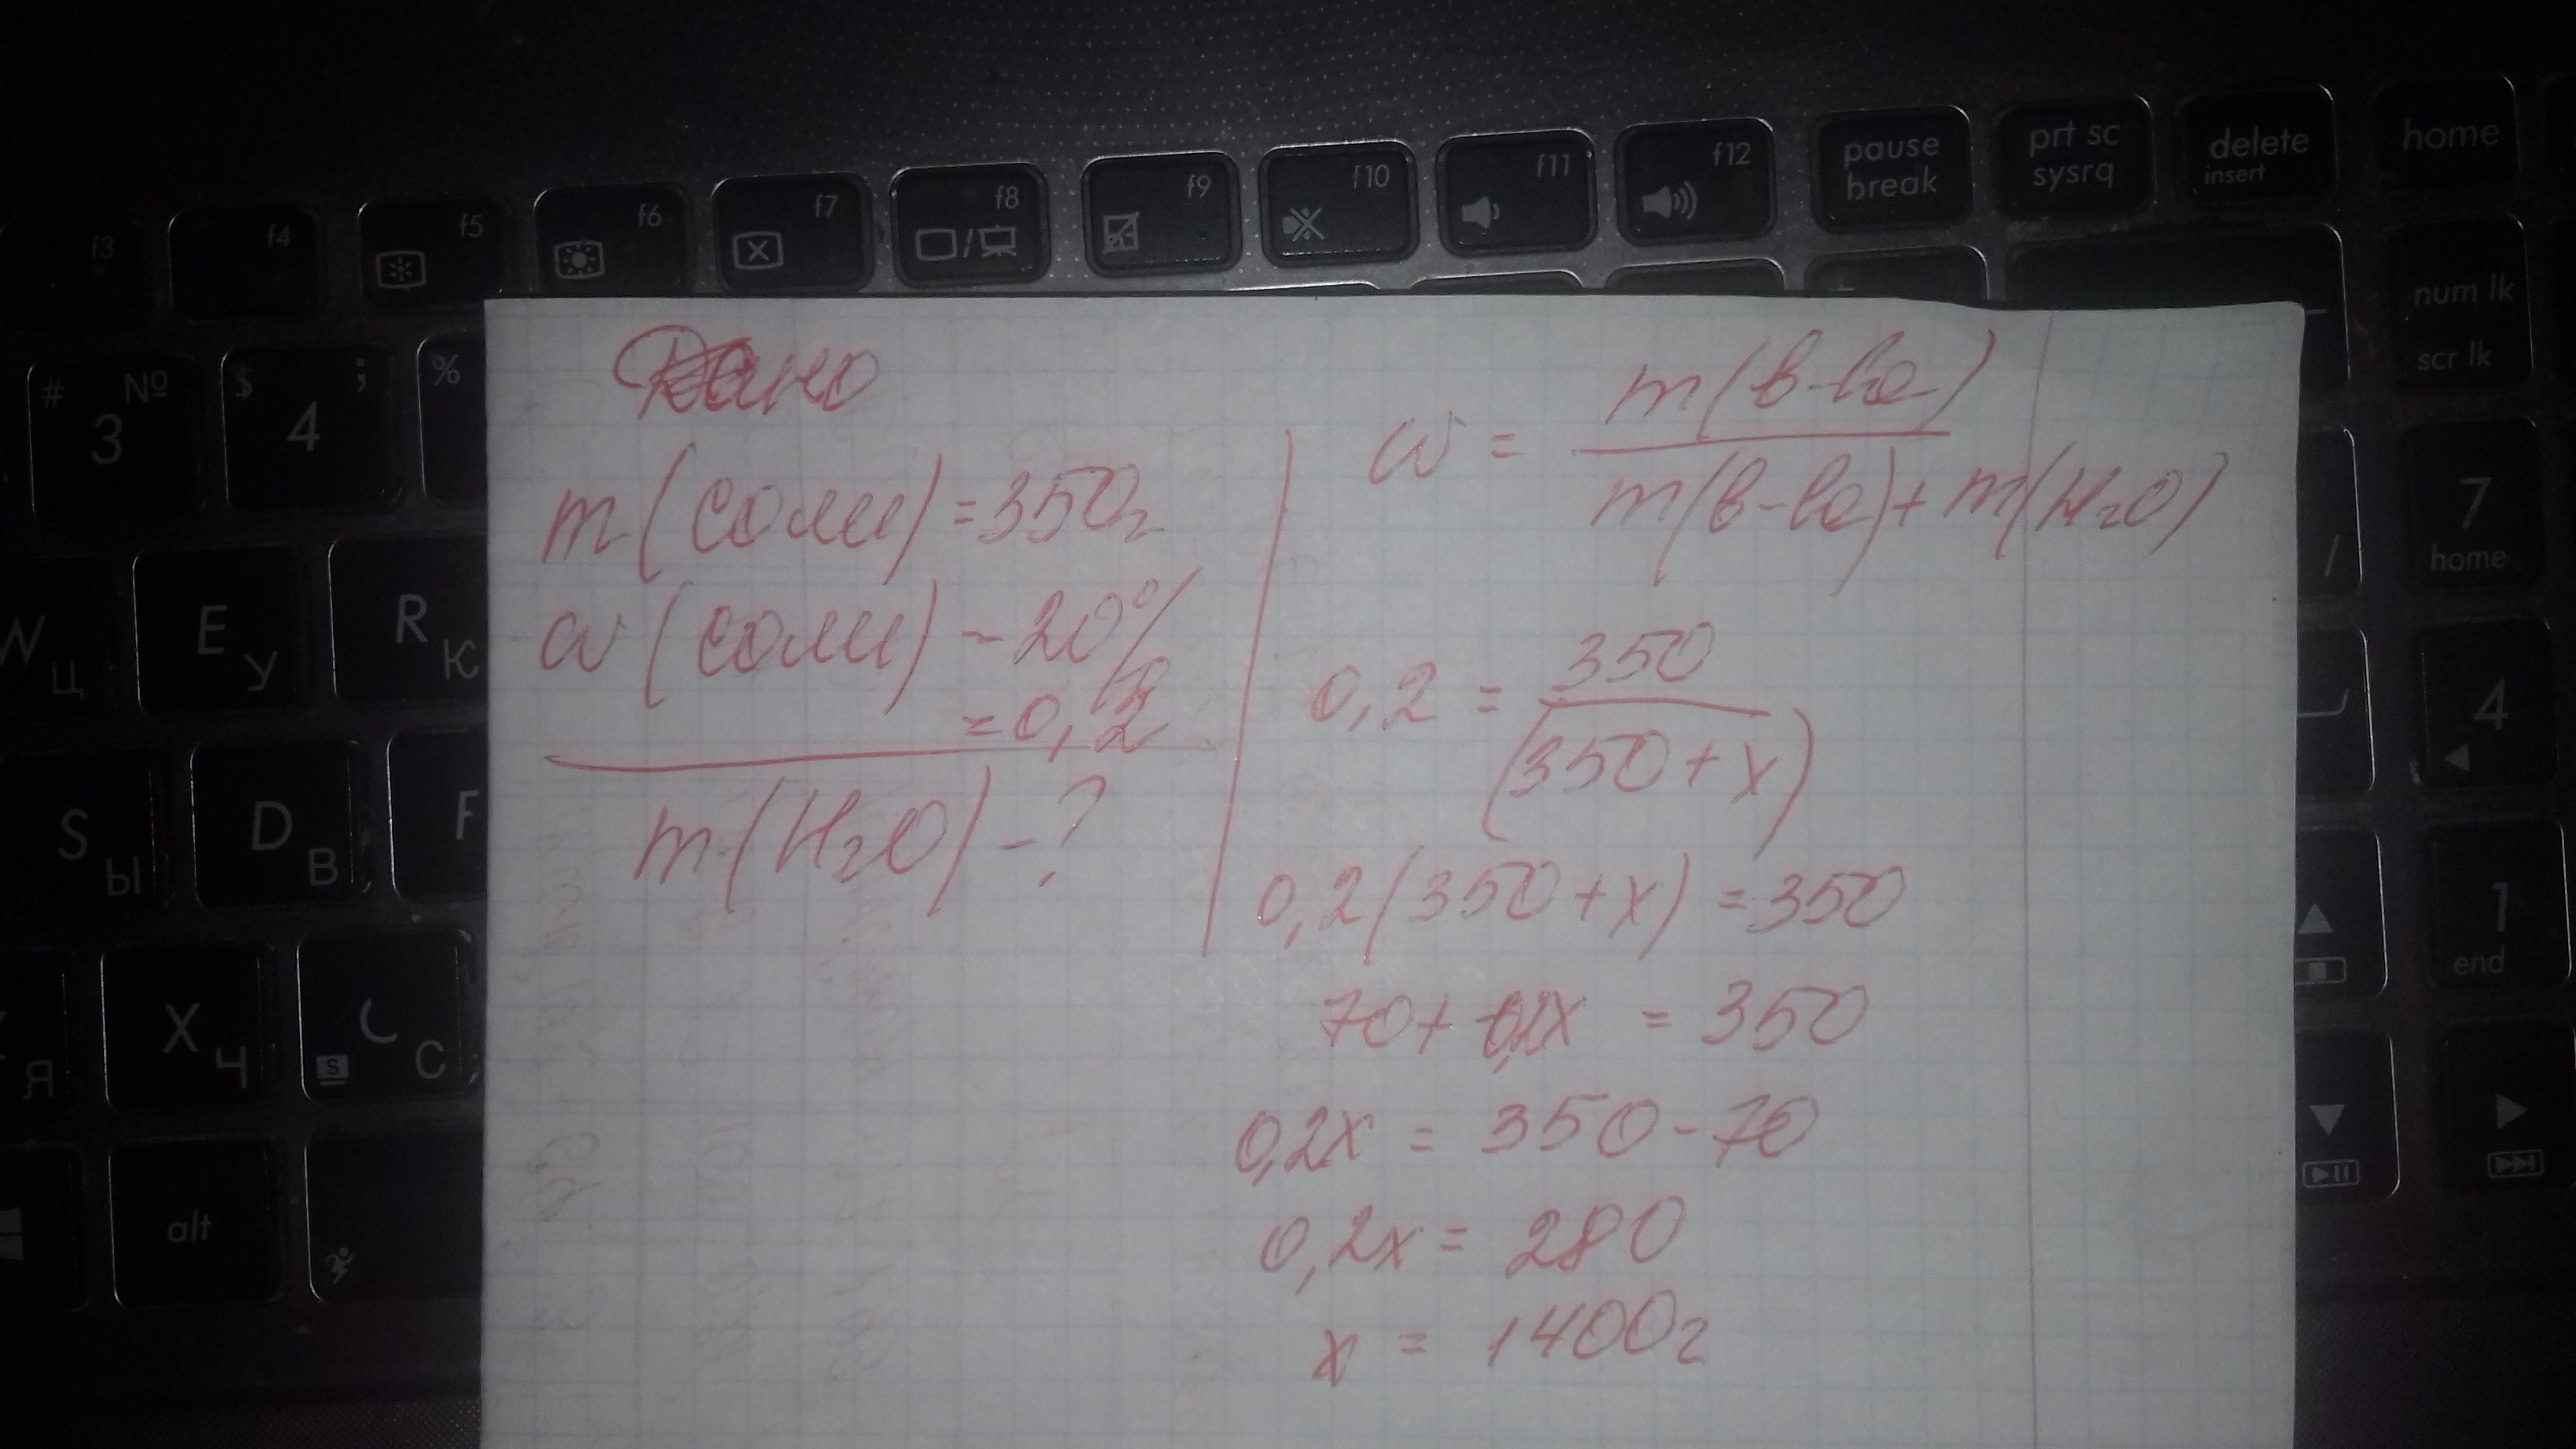 f3 f4 f5 f6 f7 f8 f9 f10 f11 f12 pause break prt sc sysrq delete insert home
# 3 № $ 4 ; %
num lk scr lk
W Ц E У R К
7 home
S Ы D В F
4
Я X Ч C С
1 end
alt
Дано
m(соли) = 350г
w(соли) - 20%
= 0,2
m(H₂O) - ?
w = m(в-ва)
m(в-ва) + m(H₂O)
0,2 = 350
(350 + x)
0,2(350 + x) = 350
70 + 0,2x = 350
0,2x = 350 - 70
0,2x = 280
x = 1400г